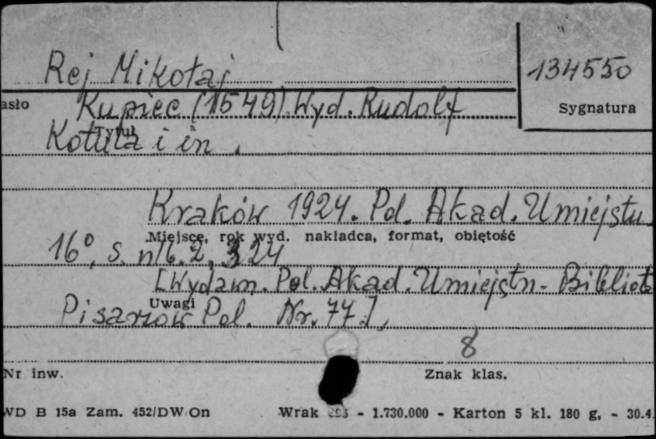 Rej Mikołaj
134550
asło
Kupiec (1549). Wyd. Rudolf
Sygnatura
Tytuł
Kotula i in.
Kraków 1924. Pol. Akad. Umiejętn.
Miejsce, rok wyd. nakładca, format, objętość
16°, s. nlb. 2, 324
[Wydawn. Pol. Akad. Umiejętn. - Bibliot.
Uwagi
Pisarzów Pol. Nr. 77],
8
Nr inw.
Znak klas.
WD B 15a Zam. 452/DW/On
Wrak - 1.730.000 - Karton 5 kl. 180 g, - 30.4.